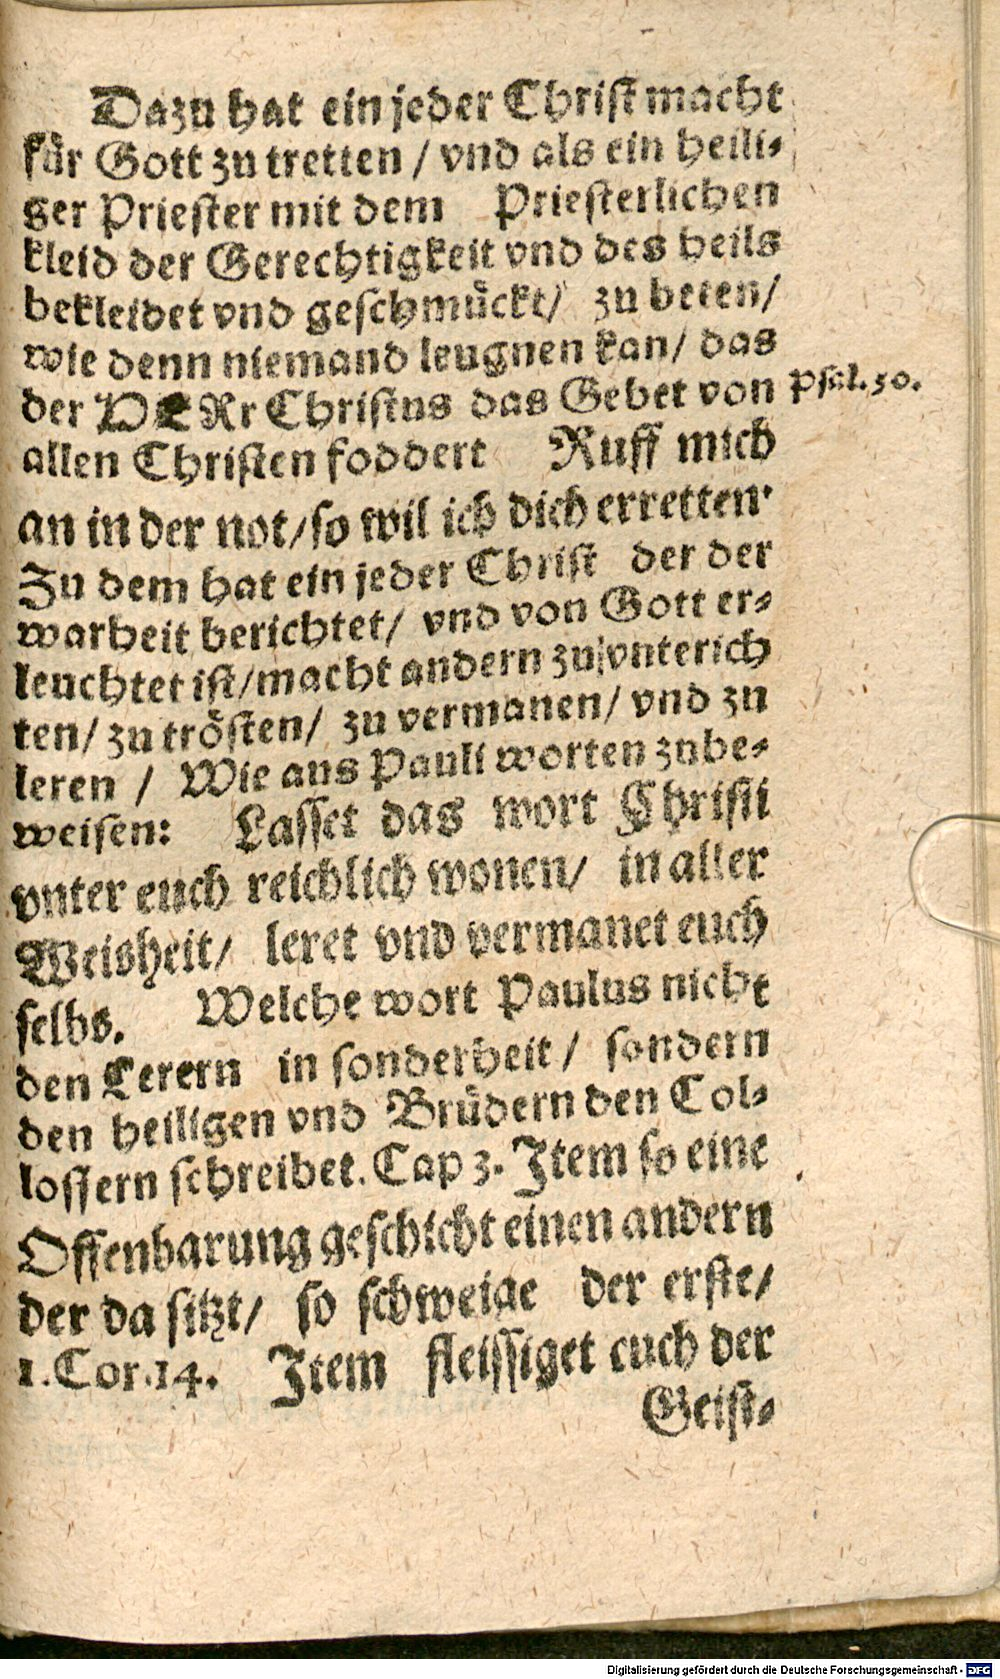 Dazu hat ein jeder Christ macht
für Gott zu tretten / vnd als ein heili-
ger Priester mit dem Priesterlichen
kleid der Gerechtigkeit vnd des heils
bekleidet vnd geschmückt/ zu beten/
wie denn niemand leugnen kan/ das
der HERr Christus das Gebet von
Psal. 50.
allen Christen foddert Ruff mich
an in der not/so wil ich dich erretten.
Zu dem hat ein jeder Christ der der
warheit berichtet/ vnd von Gott er-
leuchtet ist/macht andern zu vnterich
ten/ zu trösten/ zu vermanen/ vnd zu
leren / Wie aus Pauli worten zube-
weisen: Lasset das wort Christi
vnter euch reichlich wonen/ in aller
Weisheit/ leret vnd vermanet euch
selbs. Welche wort Paulus nicht
den Lerern in sonderheit / sondern
den heiligen vnd Brüdern den Col-
lossern schreibet. Cap 3. Item so eine
Offenbarung geschicht einen andern
der da sitzt/ so schweige der erste/
1. Cor. 14. Item fleissiget euch der
Geist-
Digitalisierung gefördert durch die Deutsche Forschungsgemeinschaft - DFG